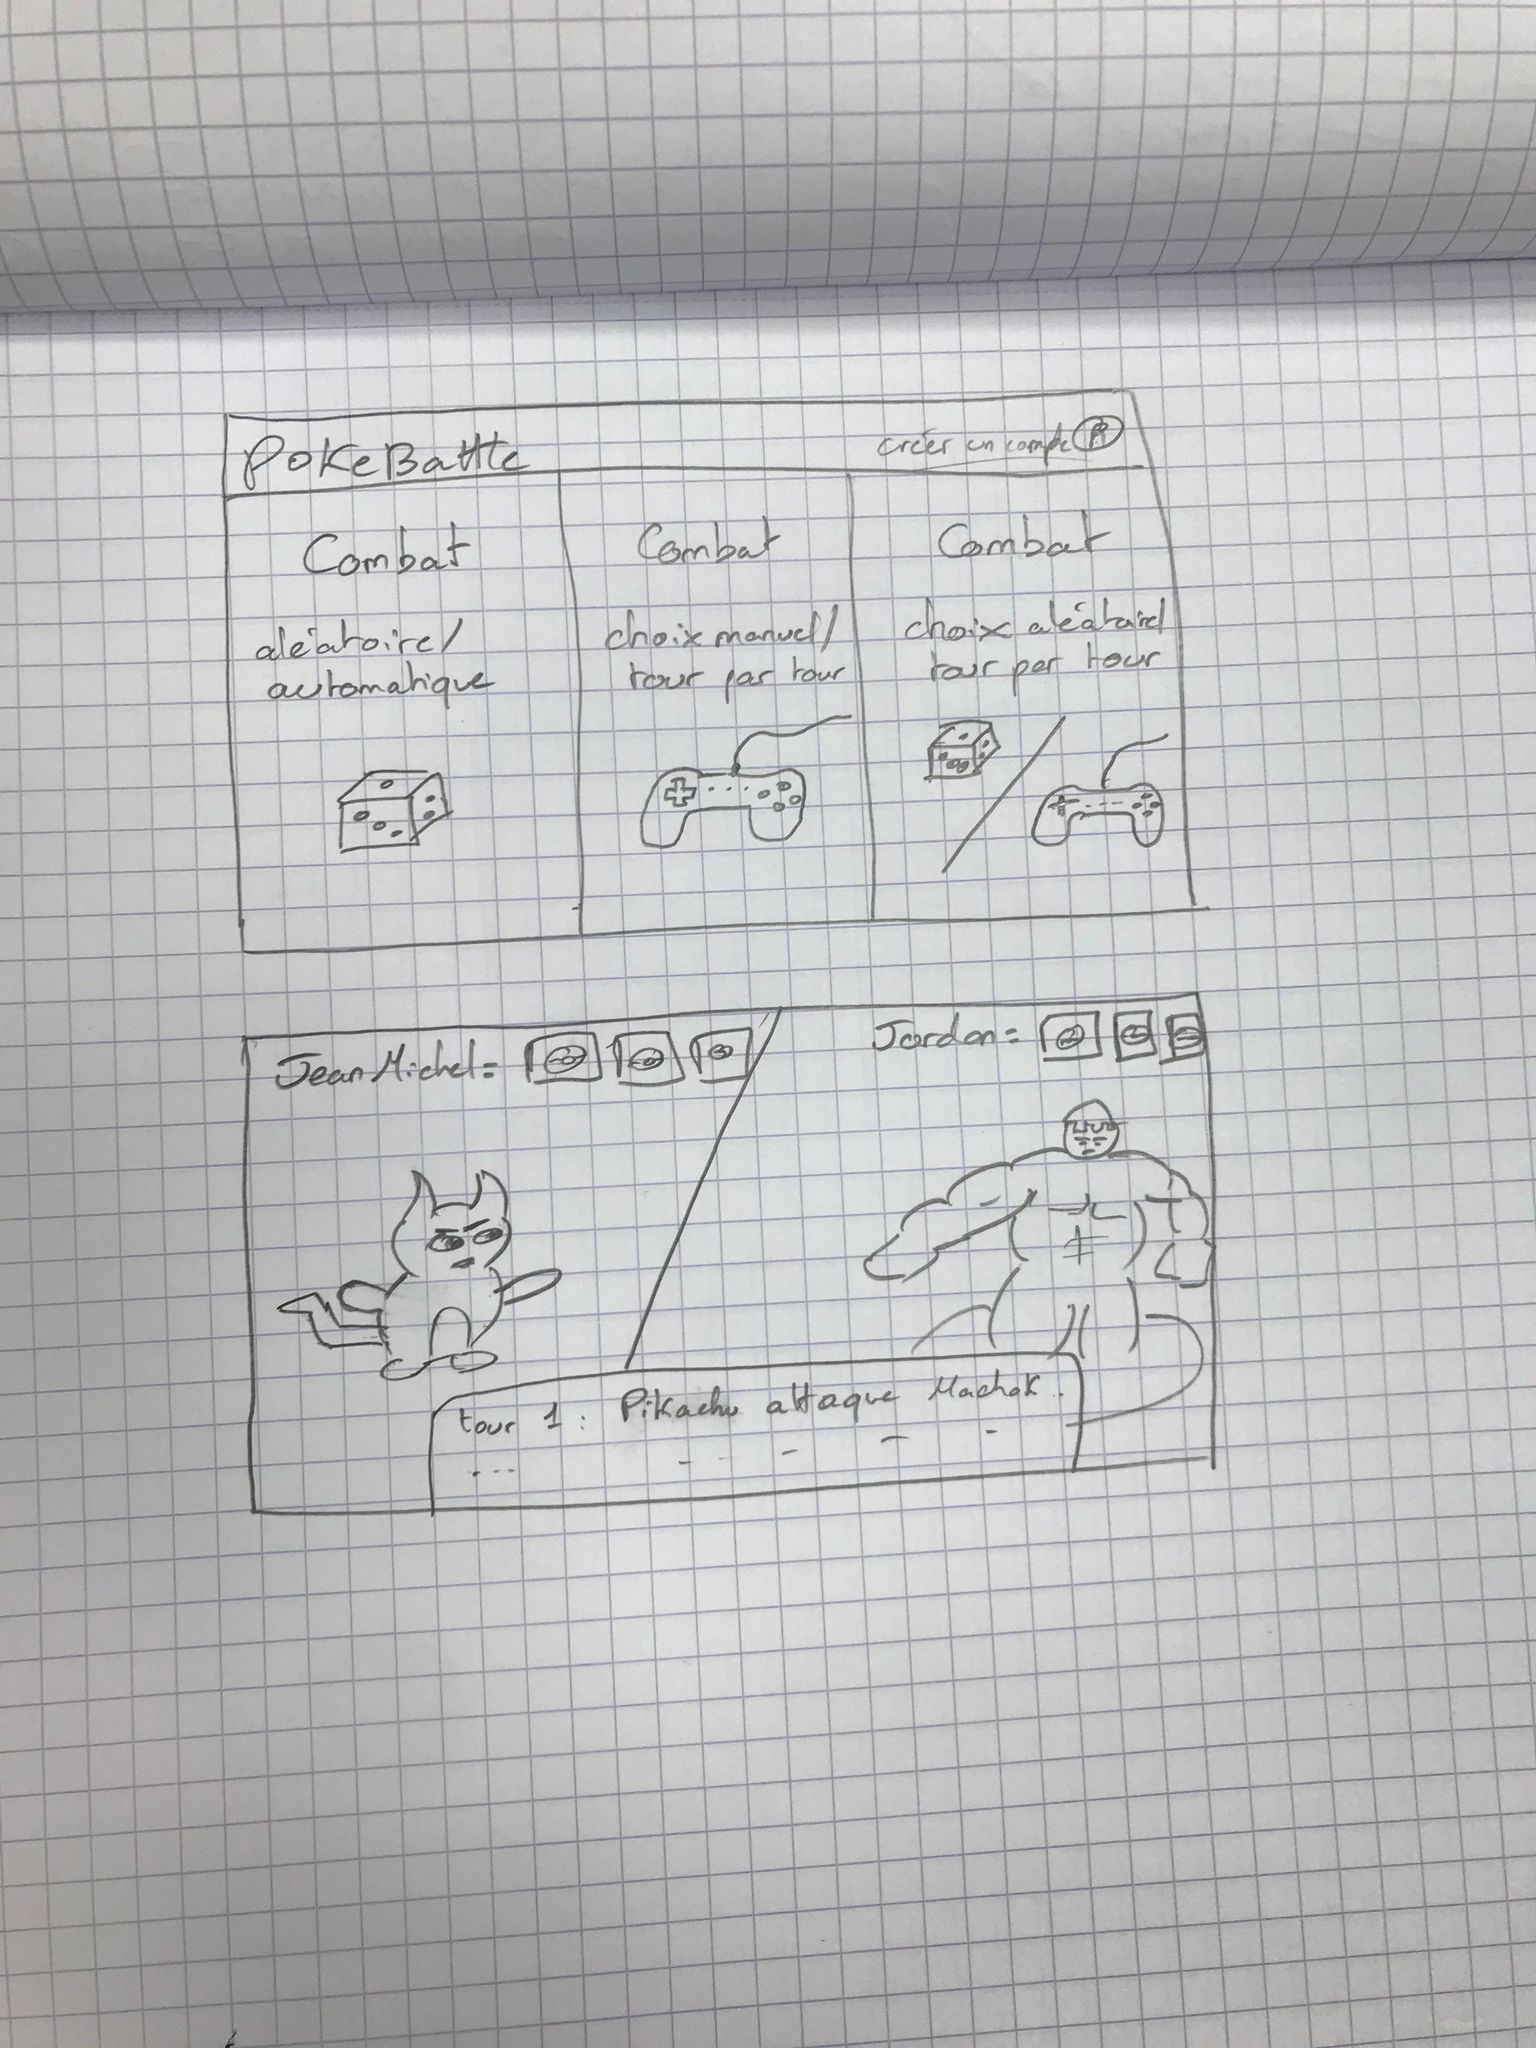 PokeBattle
créer un compte
Combat
aléatoire/
automatique
Combat
choix manuel/
tour par tour
Combat
choix aléatoire/
tour par tour
Jean Michel =
Jordan =
tour 1 : Pikachu attaque Machok..
...